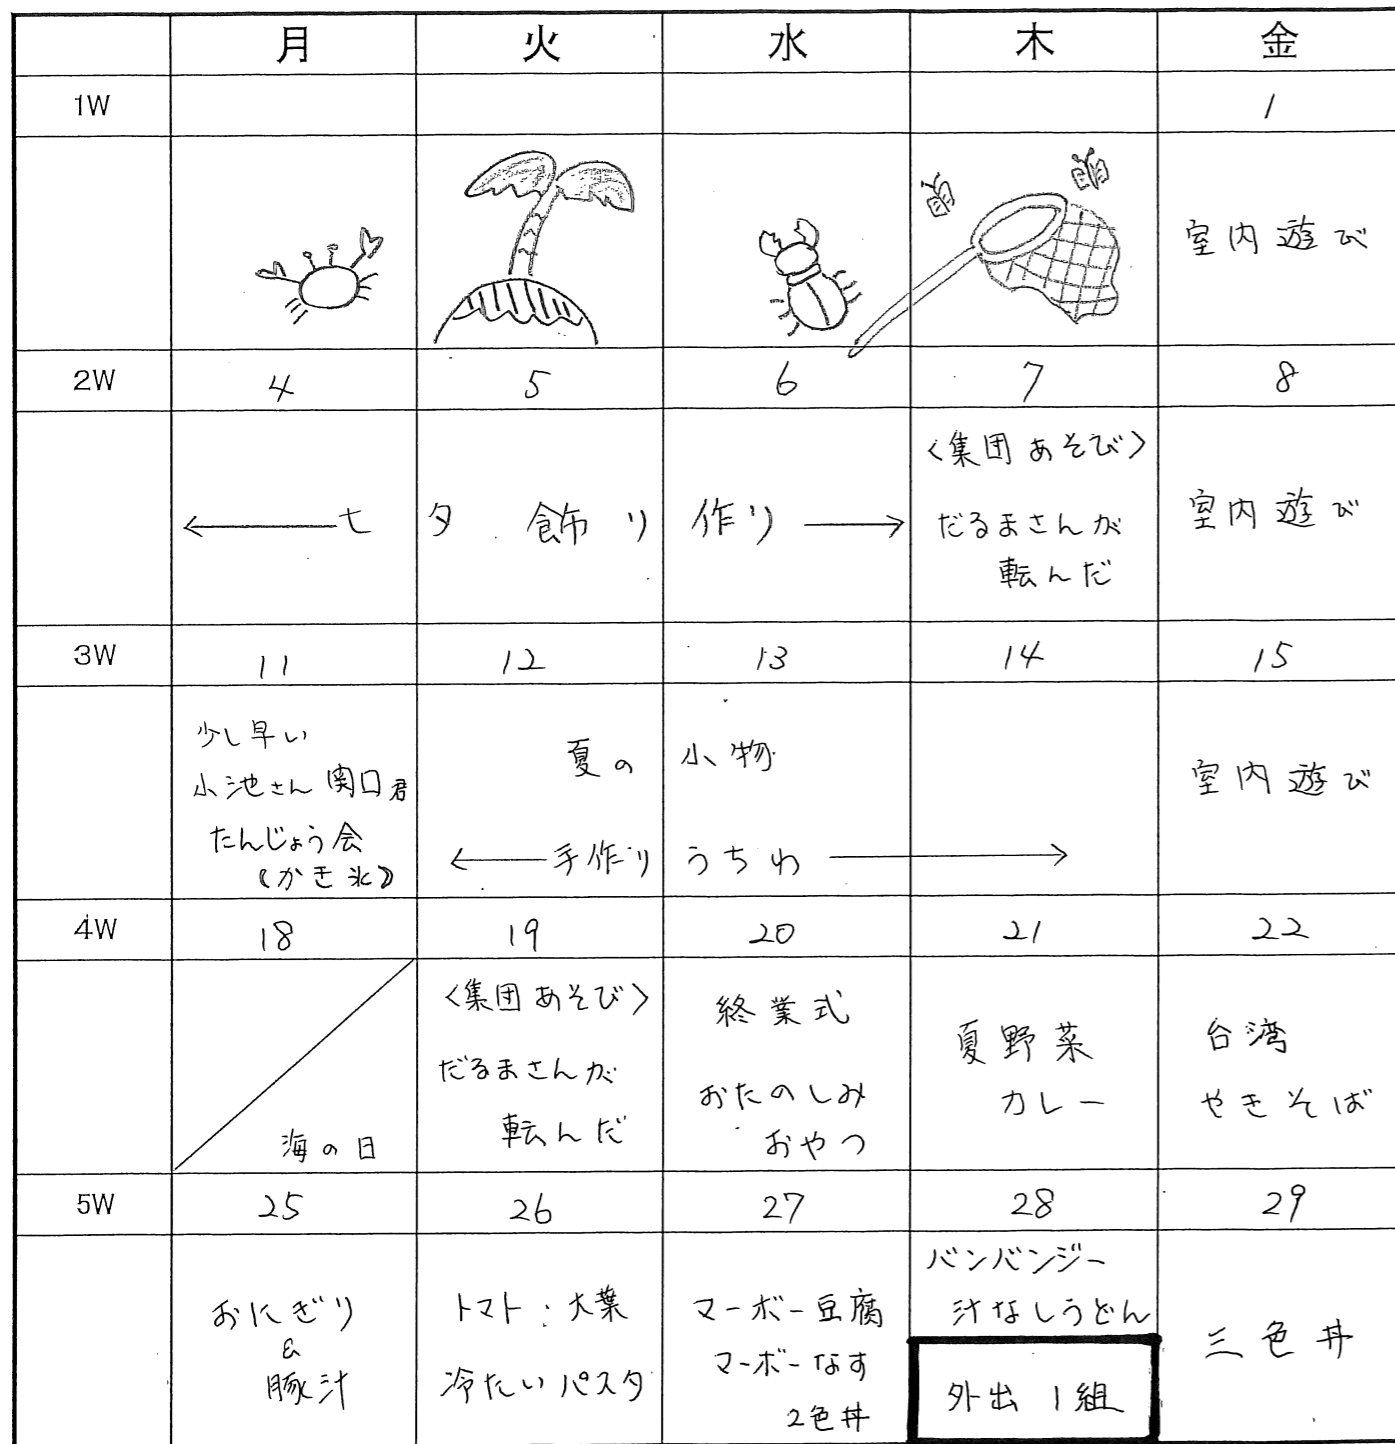 月 火 水 木 金
1W 1
室内遊び
2W 4 5 6 7 8
七夕飾り作り
〈集団あそび〉
だるまさんが
転んだ
室内遊び
3W 11 12 13 14 15
少し早い
小池さん 関口君
たんじょう会
(かき氷)
夏の小物
手作りうちわ
室内遊び
4W 18 19 20 21 22
海の日
〈集団あそび〉
だるまさんが
転んだ
終業式
おたのしみ
おやつ
夏野菜
カレー
台湾
やきそば
5W 25 26 27 28 29
おにぎり
&
豚汁
トマト・大葉
冷たいパスタ
マーボー豆腐
マーボーなす
2色丼
バンバンジー
汁なしうどん
外出 1組
三色丼